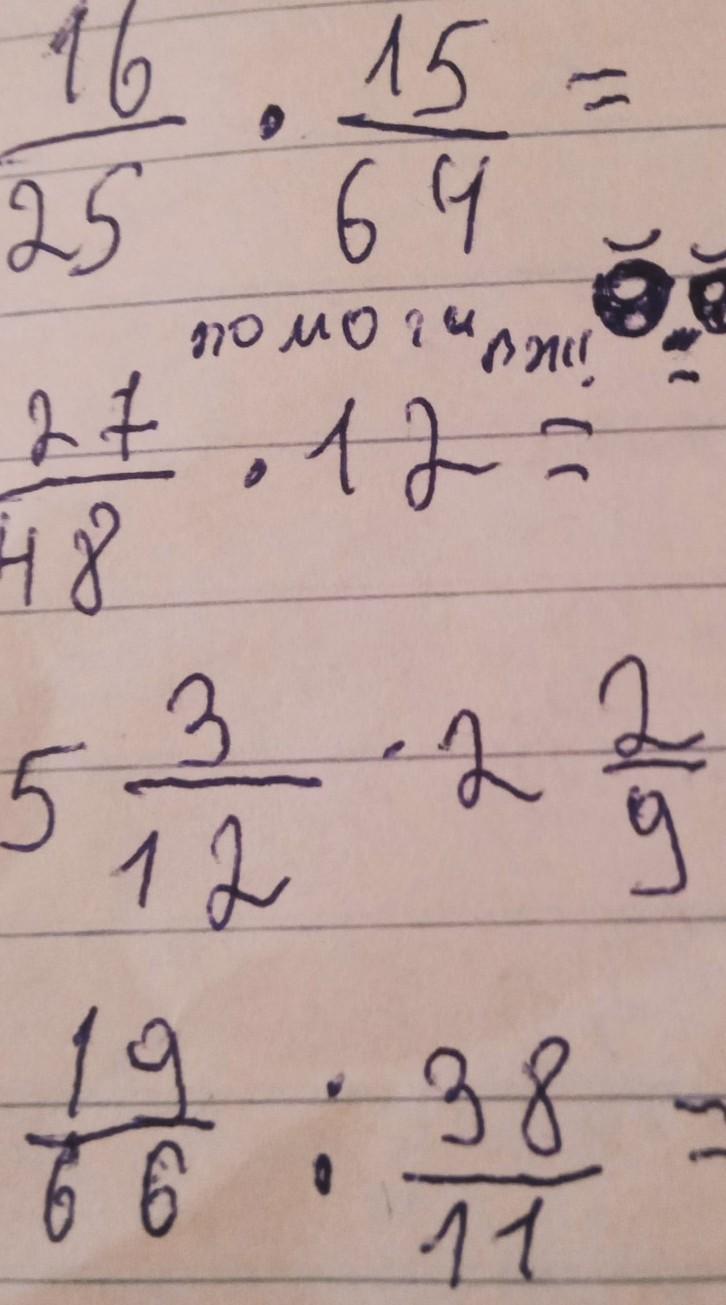 16/25 · 15/64 =
помоги
27/48 · 12 =
5 3/12 · 2 2/9
19/66 : 38/11 =